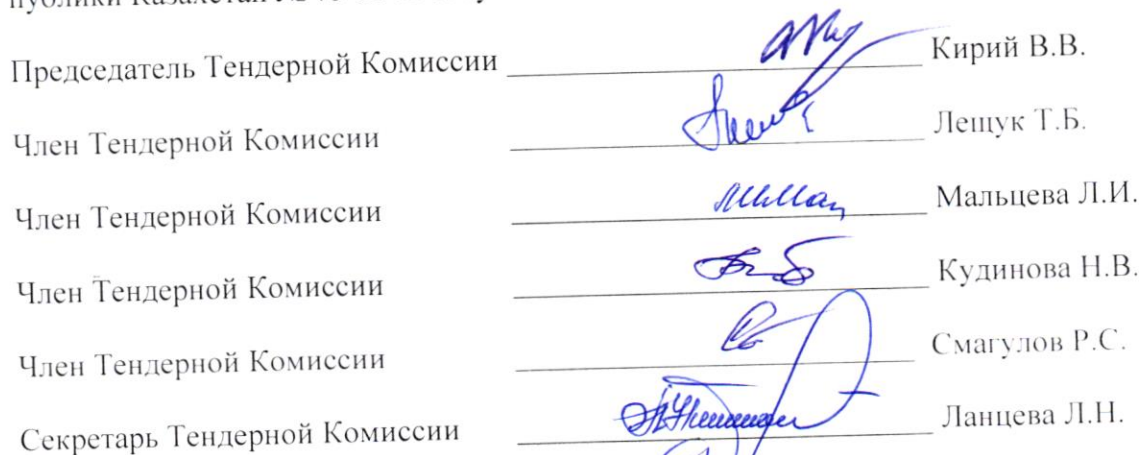 публики Казахстан
Председатель Тендерной Комиссии Кирий В.В.
Член Тендерной Комиссии Лещук Т.Б.
Член Тендерной Комиссии Мальцева Л.И.
Член Тендерной Комиссии Кудинова Н.В.
Член Тендерной Комиссии Смагулов Р.С.
Секретарь Тендерной Комиссии Ланцева Л.Н.